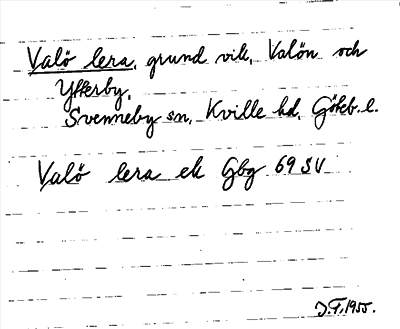 Valö lera, grund vik, Valön och
Ytterby,
Svenneby sn, Kville hd, Göteb. l.
Valö lera ek Gbg 69 SV
J.F. 1955.